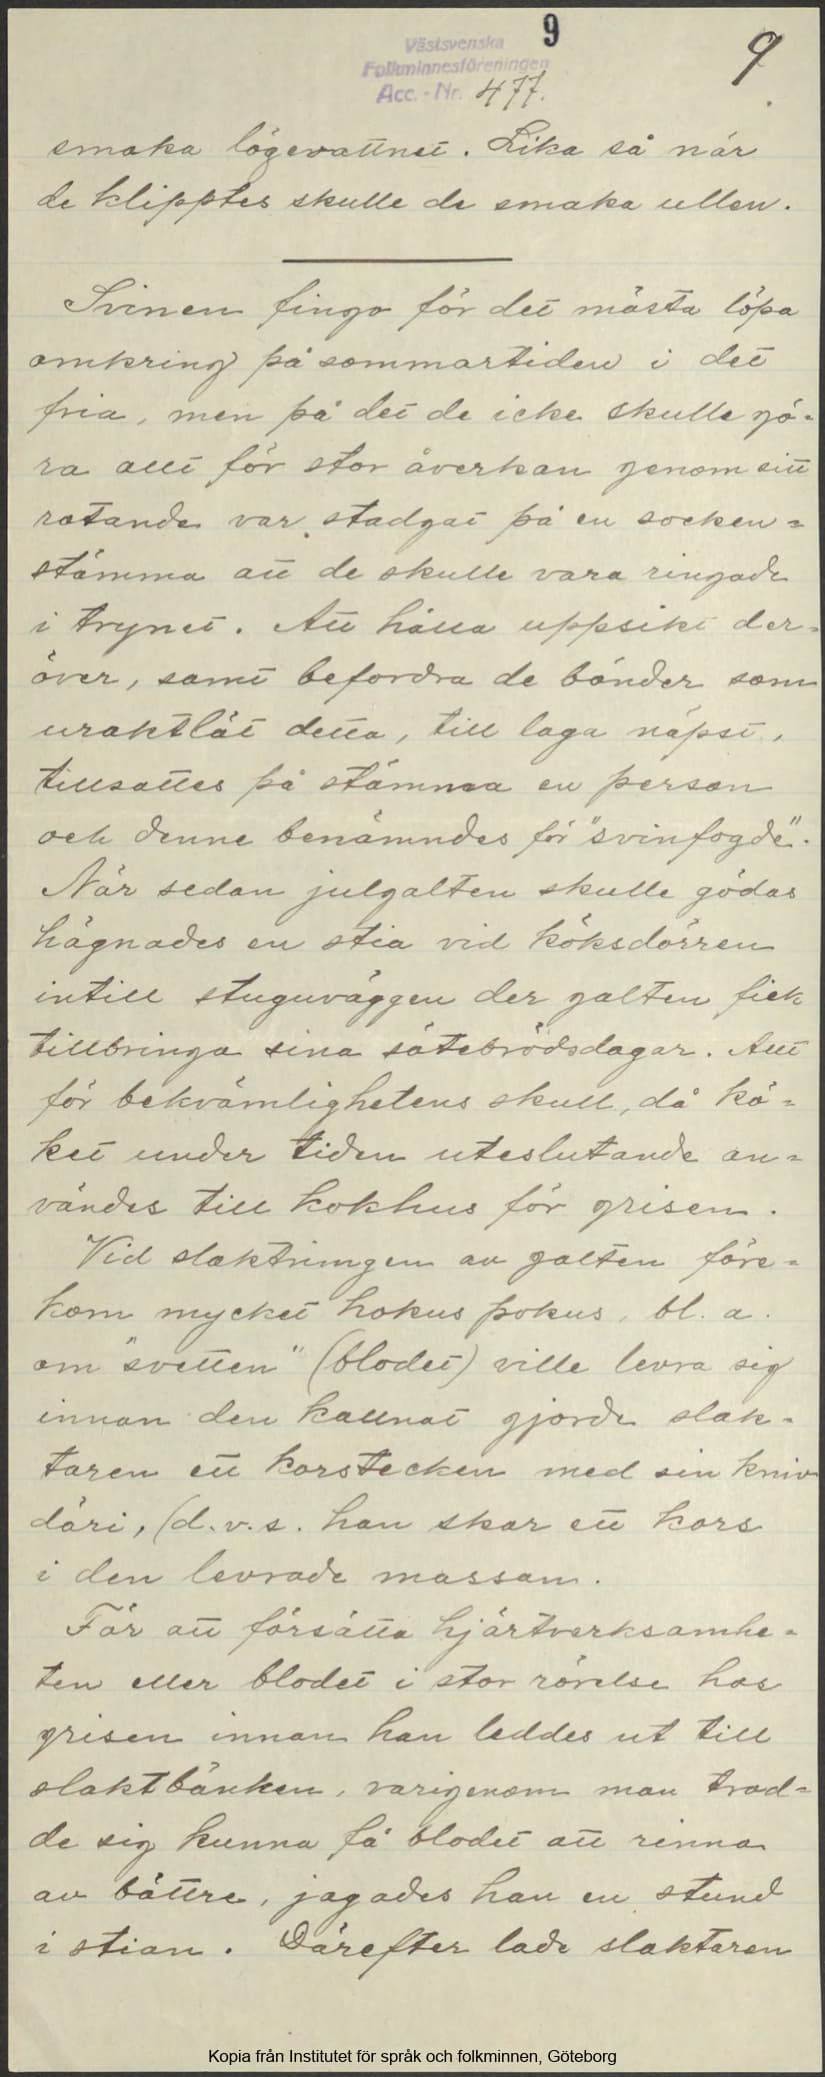 9
Västsvenska
Folkminnesföreningen
Acc. - Nr. 477.
9
smaka lögevattnet. Lika så när
de klipptes skulle de smaka ullen.
Svinen fingo för det mästa löpa
omkring på sommartiden i det
fria, men på det de icke skulle gö-
ra allt för stor åverkan genom sitt
rotande var stadgat på en socken-
stämma att de skulle vara ringade
i trynet. Att hålla uppsikt der-
över, samt befordra de bönder som
uraktlåt detta, till laga näpst,
tillsattes på stämma en person
och denne benämndes för "svinfogde".
När sedan julgalten skulle gödas
hägnades en stia vid köksdörren
intill stuguväggen der galten fick
tillbringa sina sötebrödsdagar. Allt
för bekvämlighetens skull, då kö-
ket under tiden uteslutande an-
vändes till kokhus för grisen.
Vid slaktningen av galten före-
kom mycket hokus pokus, bl. a.
om "svetten" (blodet) ville levra sig
innan den kallnat gjorde slak-
taren ett korstecken med sin kniv
däri, (d.v.s. han skar ett kors
i den levrade massan.
För att försätta hjärtverksamhe-
ten eller blodet i stor rörelse hos
grisen innan han leddes ut till
slaktbänken, varigenom man trod-
de sig kunna få blodet att rinna
av bättre, jagades han en stund
i stian. Därefter lade slaktaren
Kopia från Institutet för språk och folkminnen, Göteborg